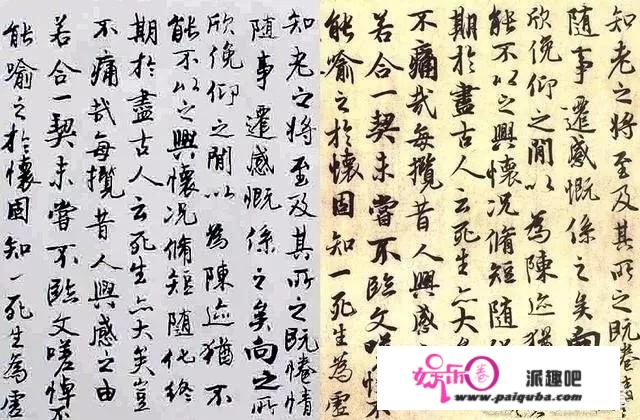 知老之将至及其所之既惓情
随事遷感慨係之矣向之所
欣俛仰之閒以為陳迹猶不
能不以之興懷况脩短随化終
期於盡古人云死生亦大矣豈
不痛哉每攬昔人興感之由
若合一契未嘗不臨文嗟悼不
能喻之於懷固知一死生為虛
知老之将至及其所之既惓
随事遷感慨係之矣向
欣俛仰之閒以為陳迹猶
能不以之興懷况脩短随
期於盡古人云死生亦大矣
不痛哉每攬昔人興感
若合一契未嘗不臨文嗟悼
能喻之於懷固知一死生為虛
娱乐圈 派趣吧
www.paiquba.com